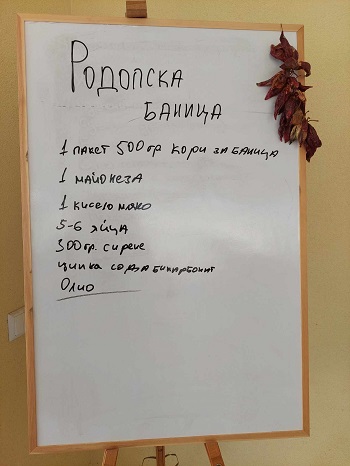 Родопска
баница
1 пакет 500 гр кори за баница
1 майонеза
1 кисело мляко
5-6 яйца
300 гр. сирене
щипка сода бикарбонат
Олио